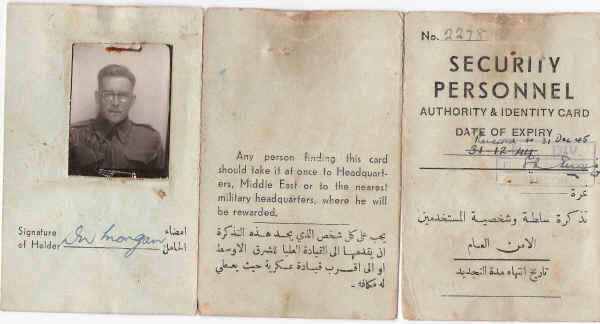 Signature
of Holder
Ian Morgan
امضاء
الحامل
Any person finding this card
should take it at once to Headquart-
ers, Middle East or to the nearest
military headquarters, where he will
be rewarded.
يجب على كل شخص الذي يجد هذه التذكرة
ان يقدمها الى القيادة العليا للشرق الاوسط
او الى اقرب قيادة عسكرية حيث يعطي
له مكافاه .
No. 2278
SECURITY
PERSONNEL
AUTHORITY & IDENTITY CARD
DATE OF EXPIRY
Renewed to 31 Dec 45
31.12.44
نمرة
تذكرة سلطة وشخصية المستخدمين
الامن العام
تاريخ انتهاء مدة التجديد